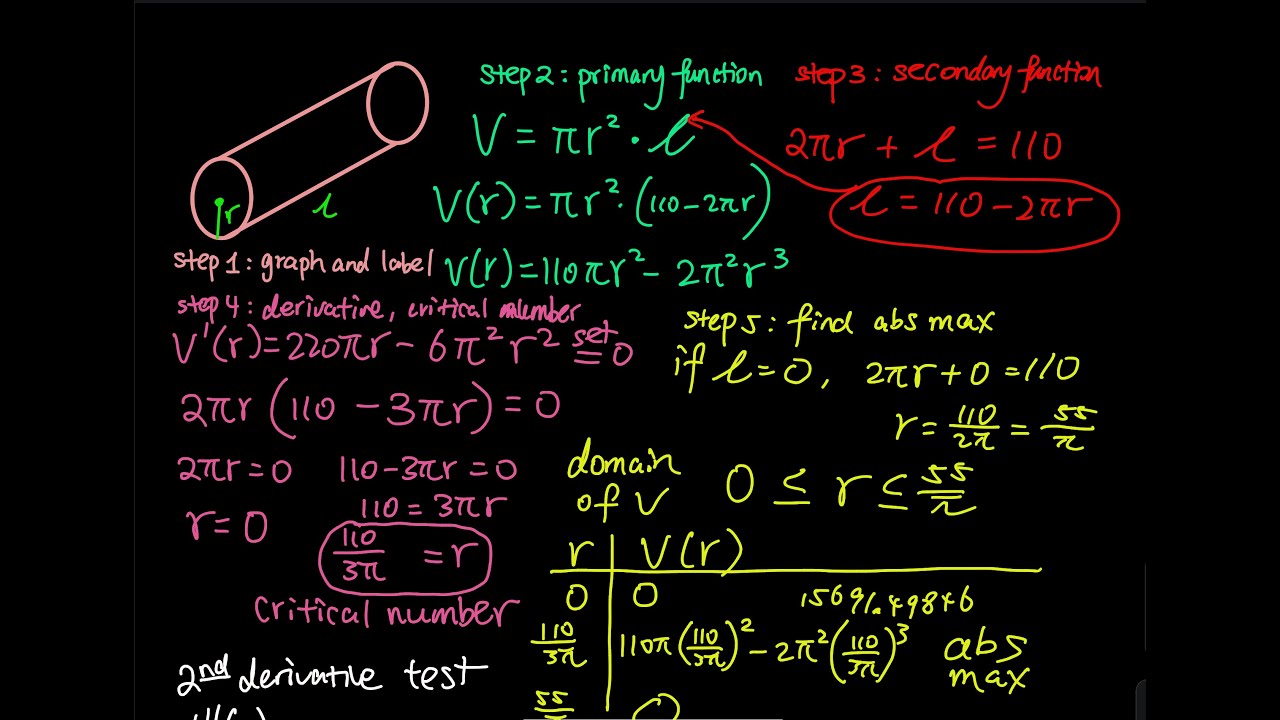 r
l
step 1: graph and label
step 2: primary function
V = πr² · l
V(r) = πr² · (110 - 2πr)
V(r) = 110πr² - 2π²r³
step 3: seconday function
2πr + l = 110
l = 110 - 2πr
step 4: derivative, critical number
V'(r) = 220πr - 6π²r² set = 0
2πr (110 - 3πr) = 0
2πr = 0 110 - 3πr = 0
110 = 3πr
r = 0
110/3π = r
critical number
2nd derivative test
step 5: find abs max
if l = 0, 2πr + 0 = 110
r = 110/2π = 55/π
domain
of V
0 ≤ r ≤ 55/π
r V(r)
0 0
15691.49846
110/3π 110π(110/3π)² - 2π²(110/3π)³ abs
max
55
0